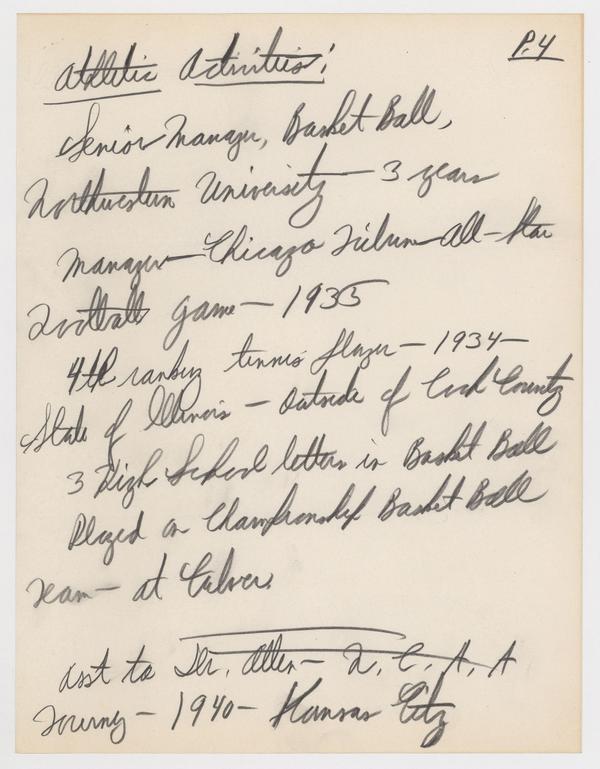 P.4
Athletic Activities:
Senior Manager, Basket Ball,
Northwestern University — 3 years
Manager — Chicago Tribune All-Star
Football Game — 1935
4th ranking tennis player — 1934 —
State of Illinois — outside of Cook County
3 High School letters in Basket Ball
Played on Championship Basket Ball
Team — at Culver.
Asst to Dr. Allen — N.C.A.A
Tourny — 1940 — Kansas City